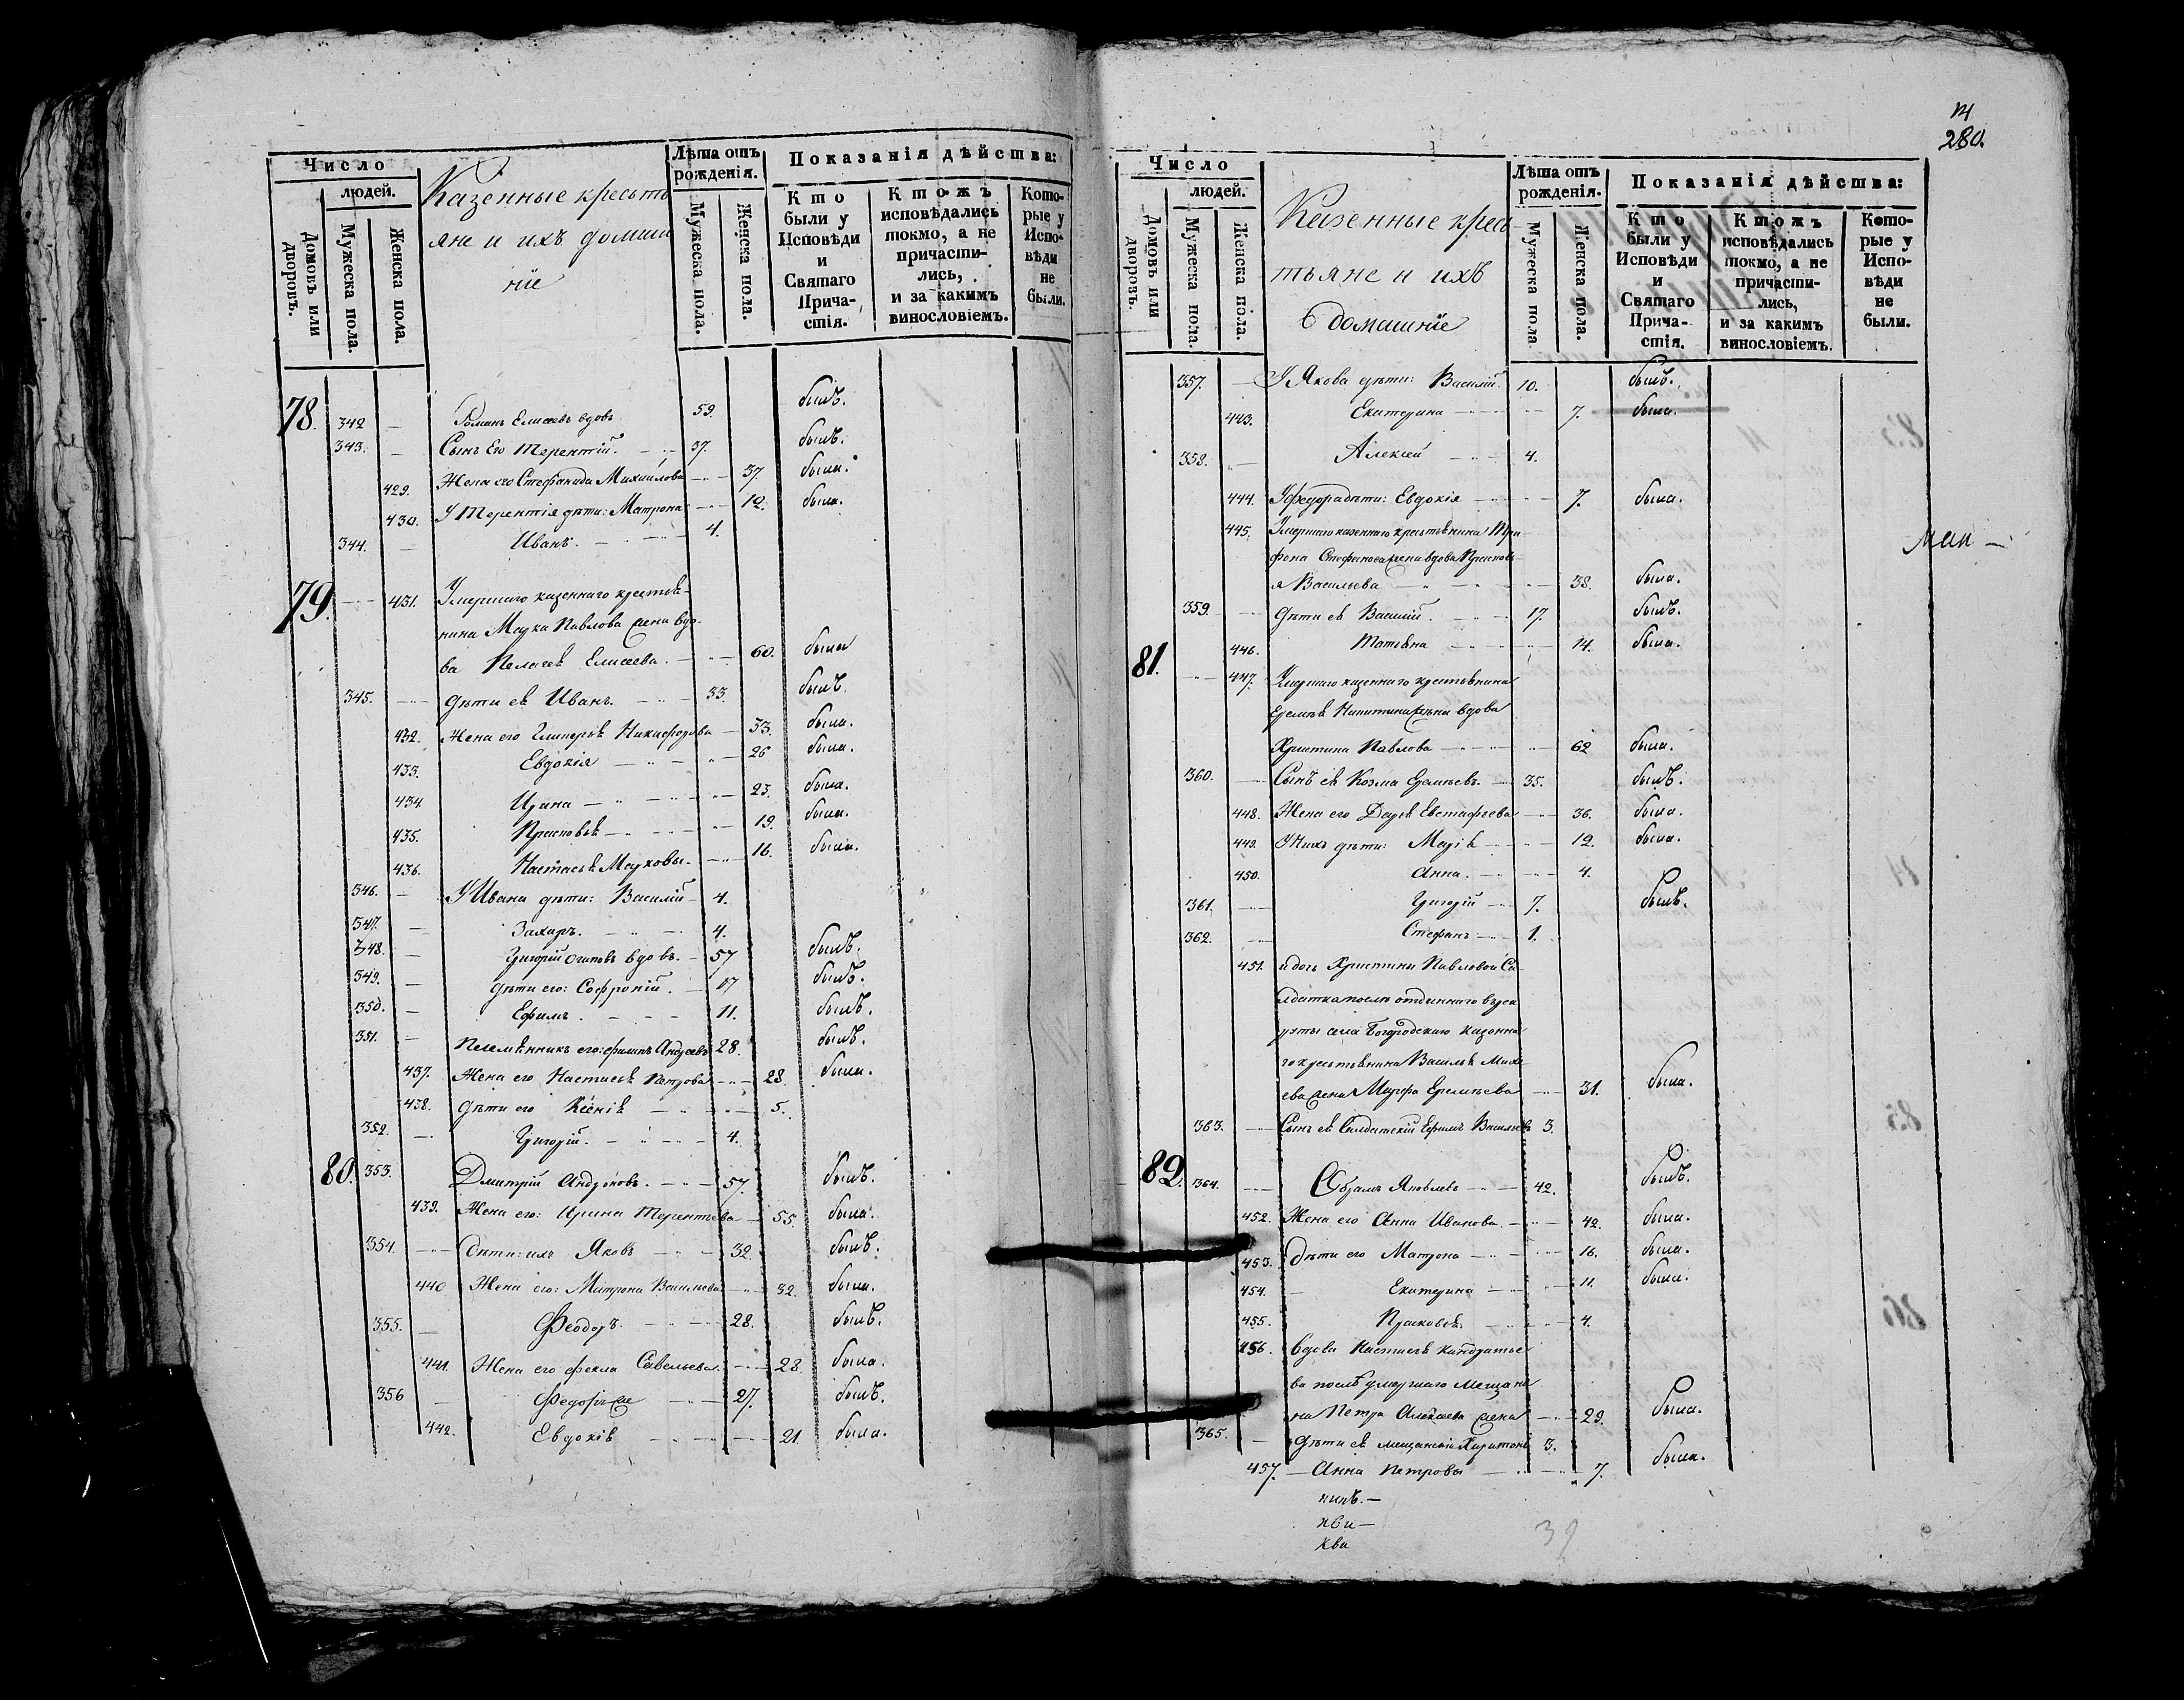 Число
людей.
Домовъ или дворовъ.
Мужеска пола.
Женска пола.
Казенные кресть
яне и ихъ домаш
ніе
Лѣта отъ рожденія.
Мужеска пола.
Женска пола.
Показанія дѣйства:
Кто были у Исповѣди и Святаго Прича-стія.
Ктожъ исповѣдались токмо, а не причасти-лись, и за какимъ винословіемъ.
Кото-рые у Испо-вѣди не были.
78. 342 — Романъ Елисеевъ вдовъ 59. былъ.
343. — Сынъ Его Терентій. 37. былъ.
429. Жена его Стефанида Михайлова 37. была.
430. У Терентія дѣти: Матрона 12. была.
344. — Иванъ. 4.
79. 431. Умершаго казеннаго крестья-
нина Марка Павлова жена вдо-
ва Пелагея Елисеева. 60. была
345. Дѣти ея Иванъ. 33. былъ.
432. Жена его Гликерья Никифорова 33. была.
433. Евдокія 26 была.
434 Ирина 23. была.
435. Прасковья 19. была.
436. Настасья Марковы. 16. была.
346. — У Ивана дѣти: Василій 4.
347. — Захаръ. 4.
348. — Григорій Осиповъ вдовъ. 57 былъ.
349. — Дѣти его: Софроній. 17 былъ.
350. — Ефимъ. 11. былъ.
351. — Племянникъ его: Филипъ Андреевъ 28. былъ.
437. Жена его Настасья Петрова 28. была.
438. Дѣти его Ксенія 5.
352. Григорій. 4.
80. 353. Дмитрій Андроновъ. 57. былъ.
439. Жена его: Ирина Терентьева 55. была.
354. Дѣти: ихъ Яковъ 32. былъ.
440 Жена его: Матрона Васильева 32. была.
355. Феодоръ. 28. былъ.
441. Жена его Фекла Савельева. 28. была.
356 Федоръ же 27. былъ.
442. Евдокія 21. была.
14
280.
Число
людей.
Домовъ или дворовъ.
Мужеска пола.
Женска пола.
Казенные крес-
тьяне и ихъ
домашніе
Лѣта отъ рожденія.
Мужеска пола
Женска пола.
Показанія дѣйства:
Кто были у Исповѣди и Святаго Прича-стія.
Ктожъ исповѣдались токмо, а не причасти-лись, и за какимъ винословіемъ.
Кото-рые у Испо-вѣди не были.
357. У Якова дѣти: Василій. 10. былъ.
443. Екатерина 7. была.
358. Алексій 4.
444. У Федора дѣти: Евдокія 7. была.
445. Умершаго казеннаго крестьянина Три-
фона Стефанова жена вдова Прасковь-
я Васильева 38. была.
359. Дѣти ея Василій. 17. былъ.
446. Татьяна 14. была.
81. 447. Умершаго казеннаго крестьянина
Еремея Никитина жена вдова
Христина Павлова 62 была.
360. Сынъ ея Козма Еремѣевъ. 35. былъ.
448. Жена его Дарья Евстафьева 36. была.
449. У нихъ дѣти: Марія 12. была.
450. Анна. 4.
361. Григорій 7. былъ.
362. Стефанъ 1.
451. и дочь Христины Павловой Са-
лдатка послѣ отданнаго въ рек
руты села Богородскаго казенна
го крестьянина Василья Михе
ева жена Марфа Еремѣева 31. была.
363. Сынъ ея Салдатскій Ефимъ Васильевъ 3.
82. 364. Абрамъ Яковлевъ 42. былъ.
452. Жена его Анна Иванова. 42. была.
453. Дѣти его Матрона 16. была.
454. Екатерина 11. была.
455. Прасковья. 4.
456. Вдова Настасья Кондратье
ва послѣ умершаго мещани
на Петра Алексеева жена 29. была.
365. Дѣти ея мещанскіе Харитонъ 3.
457. Анна Петровы 7. была.
39